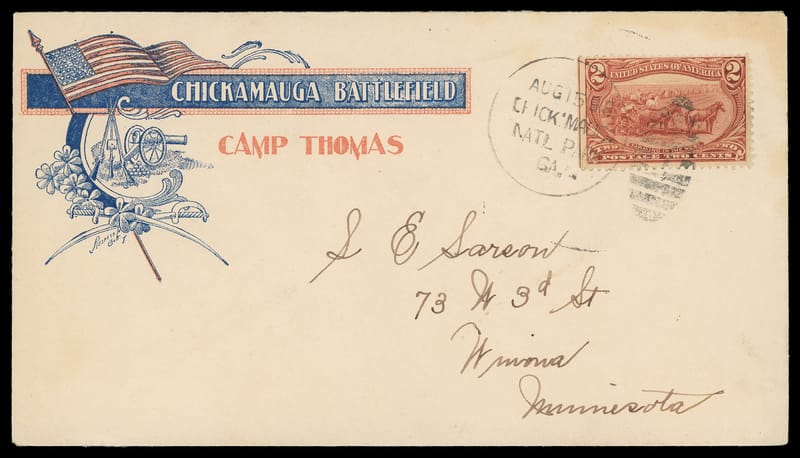 CHICKAMAUGA BATTLEFIELD
CAMP THOMAS
AUG 15
CHICK'MA
NAT'L PARK
GA.
2 UNITED STATES OF AMERICA 2
TWO FARMING IN THE WEST TWO
POSTAGE TWO CENTS
S E Sarson
73 W 3d St
Winona
Minnesota